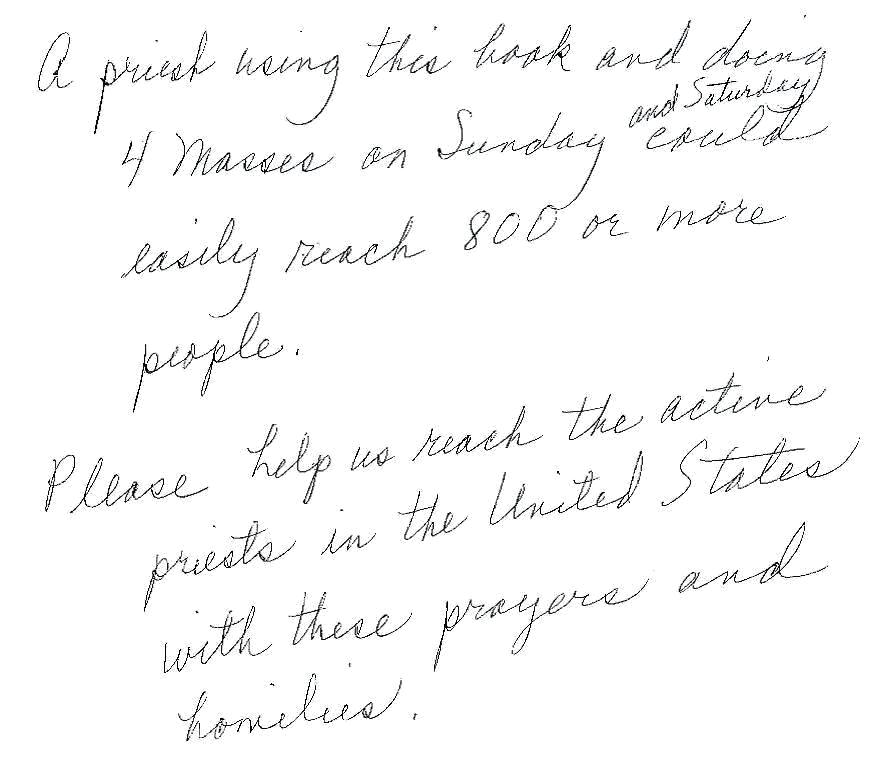 A priest using this book and doing
4 Masses on Sunday and Saturday could
easily reach 800 or more
people.
Please help us reach the active
priests in the United States
with these prayers and
homilies.